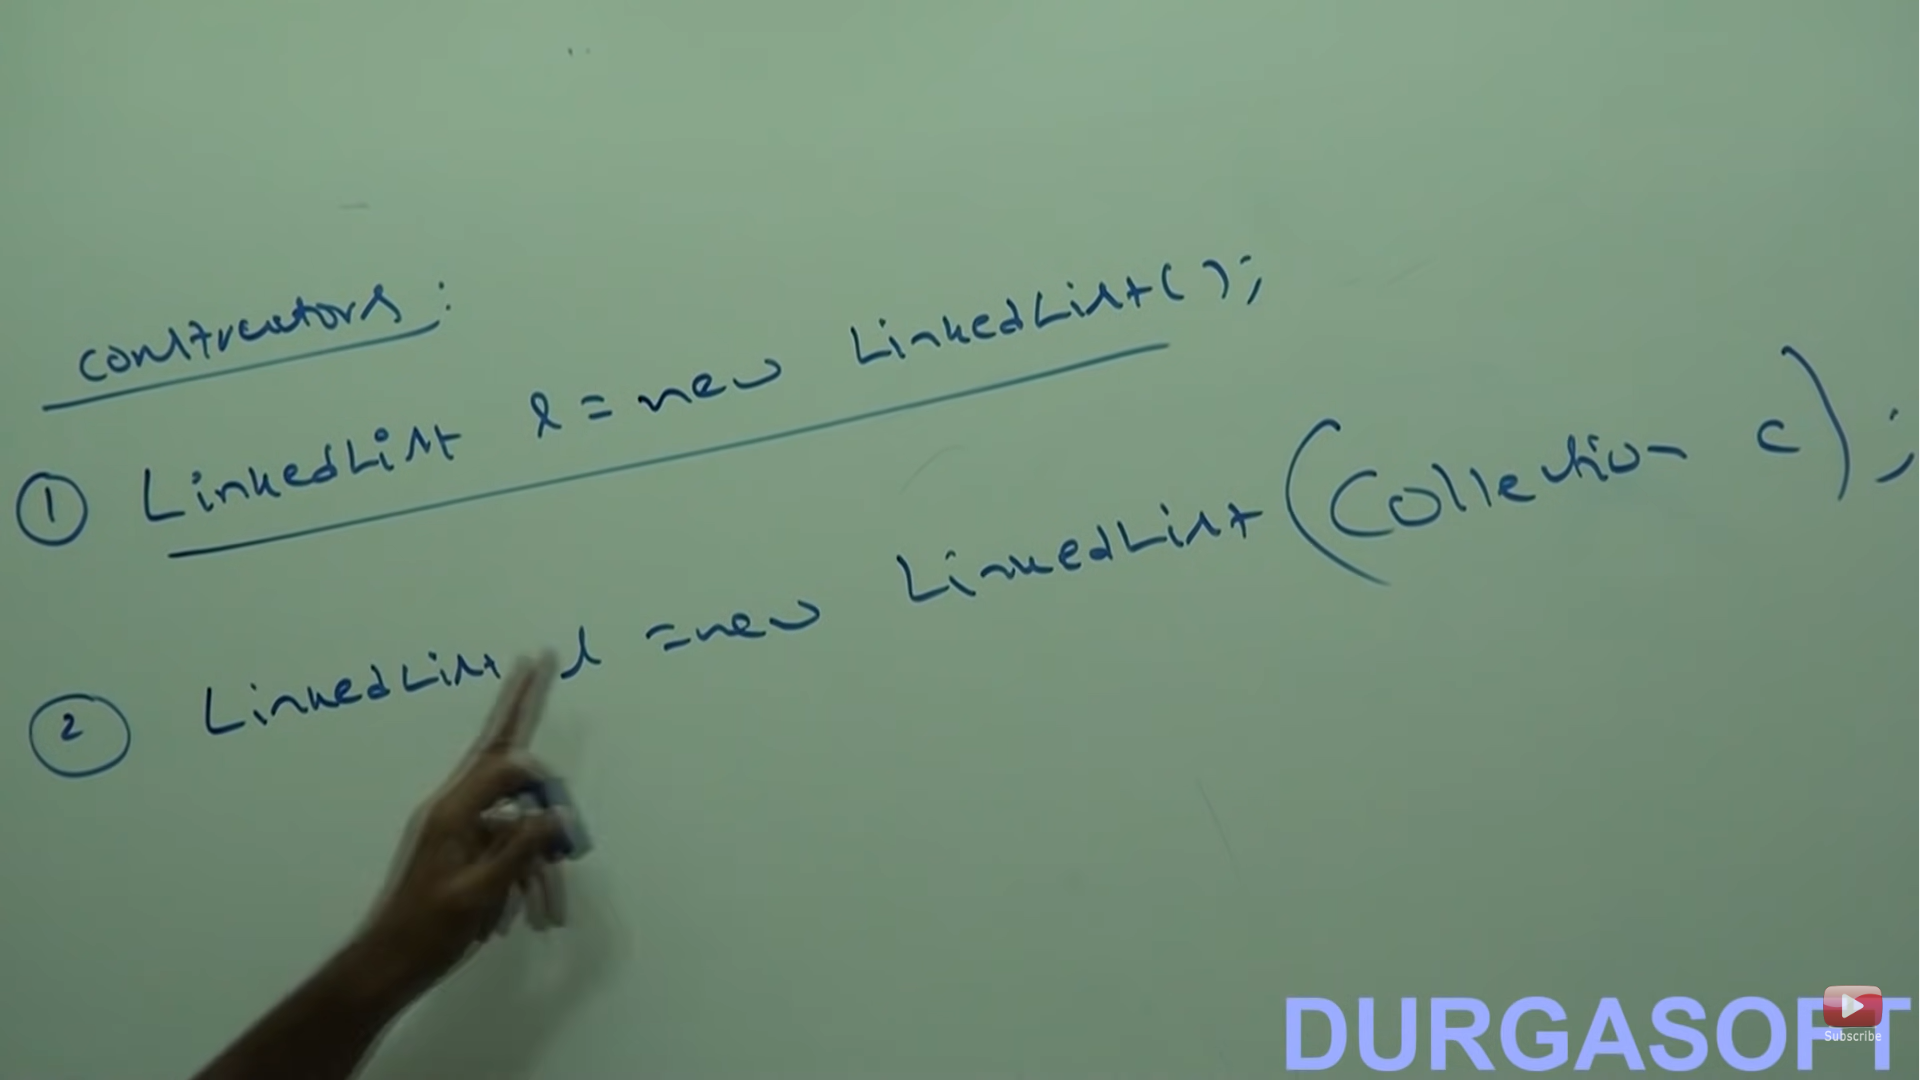 constructors:
① LinkedList l = new LinkedList();
② LinkedList l = new LinkedList(Collection c);
DURGASOFT
Subscribe